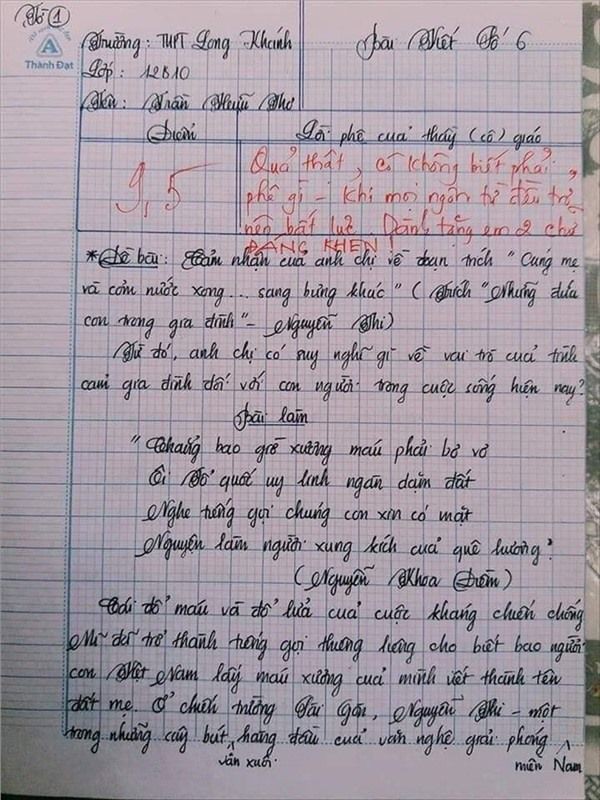 Tờ 1
Thành Đạt
Trường: THPT Long Khánh
Bài Viết Số 6
Lớp: 12B10
Tên: Trần Hữu Thơ
Điểm
Lời phê của thầy (cô) giáo
9,5
Quả thật, cô không biết phải
phê gì - Khi mọi ngôn từ đều trở
nên bất lực. Dành tặng em 2 chữ
ĐÁNG KHEN!
* Đề bài: Cảm nhận của anh chị về đoạn trích "Cúng mẹ
và cơm nước xong... sang bưng khác" (Trích "Những đứa
con trong gia đình" - Nguyễn Thi)
Từ đó, anh chị có suy nghĩ gì về vai trò của tình
cảm gia đình đối với con người trong cuộc sống hiện nay?
Bài làm
"Chẳng bao giờ xương máu phải bơ vơ
Ôi Tổ quốc uy linh ngàn dặm đất
Nghe tiếng gọi chúng con xin có mặt
Nguyện làm người xung kích của quê hương"
(Nguyễn Khoa Điềm)
Cái đổ máu và đổ lửa của cuộc kháng chiến chống
Mĩ đã trở thành tiếng gọi thiêng liêng cho biết bao người
con Việt Nam lấy máu xương của mình viết thành tên
đất mẹ. Ở chiến trường Sài Gòn, Nguyễn Thi - một
trong những cây bút hàng đầu của văn nghệ giải phóng
văn xuôi
miền Nam